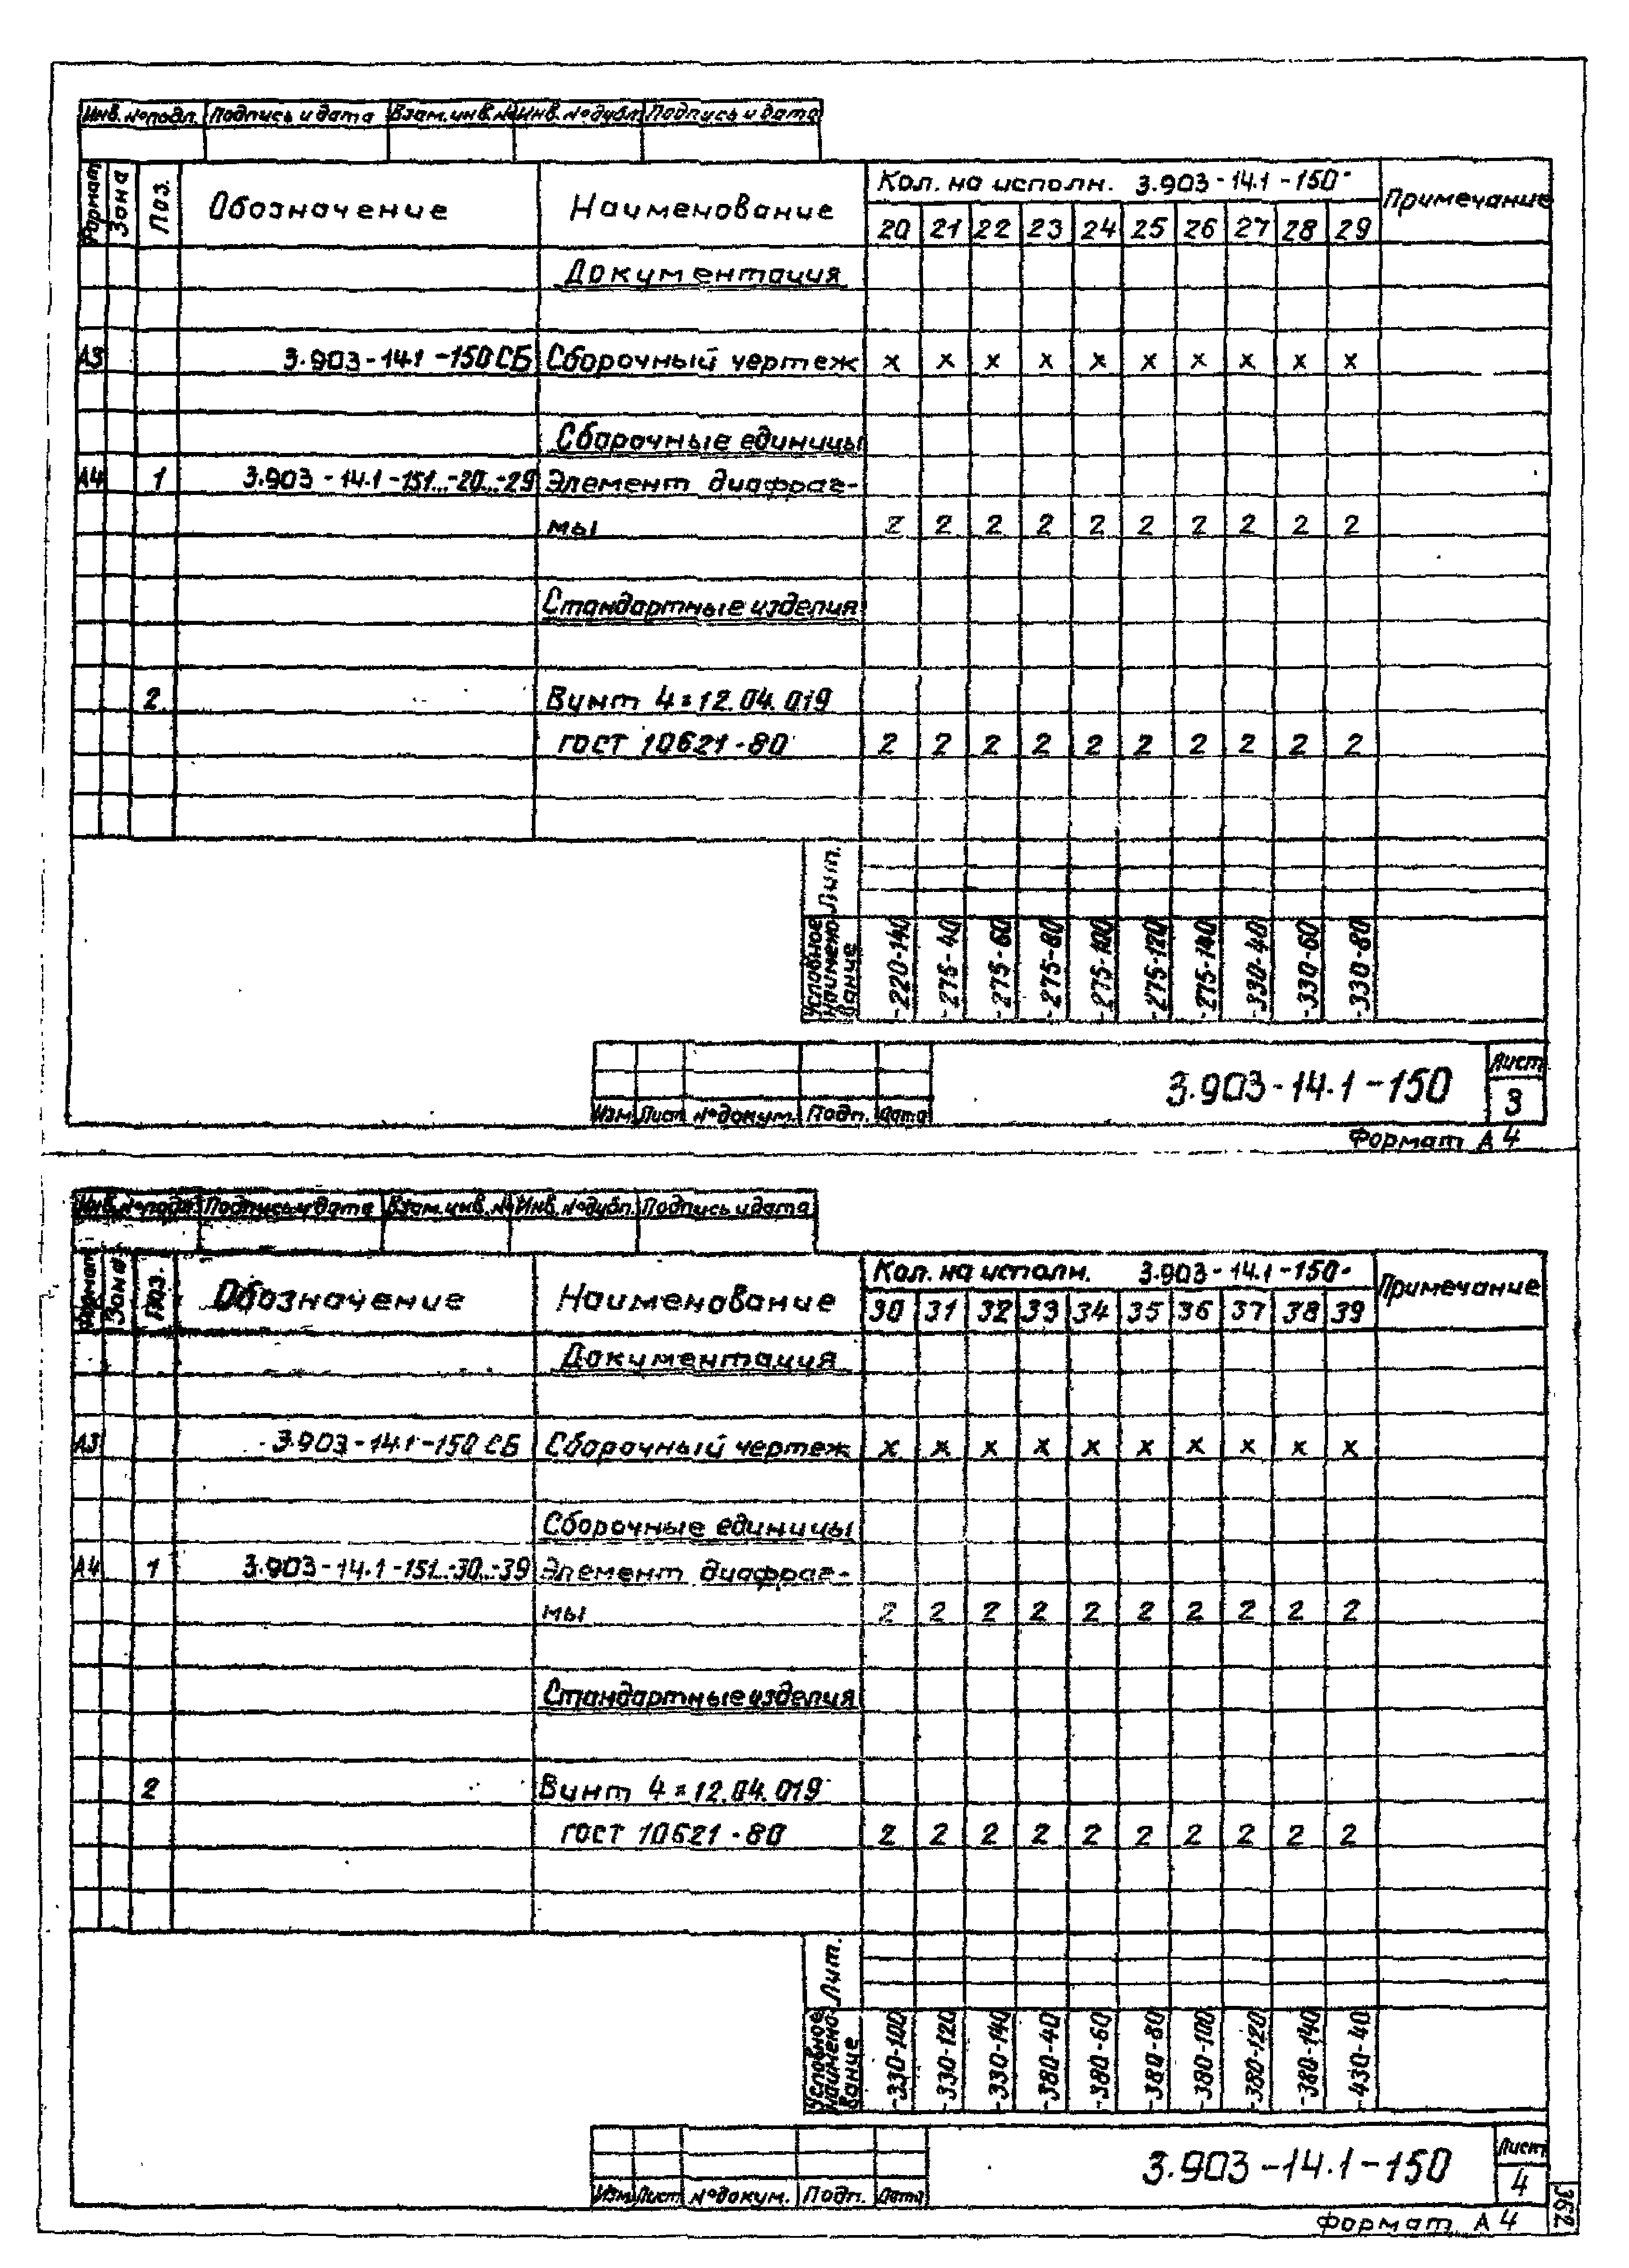 Инв. №подл. Подпись и дата Взам.инв.№ Инв.№дубл. Подпись и дата
Формат Зона Поз. Обозначение Наименование Кол. на исполн. 3.903-14.1-150- Примечание
20 21 22 23 24 25 26 27 28 29
Документация
А3 3.903-14.1-150СБ Сборочный чертеж х х х х х х х х х х
Сборочные единицы
А4 1 3.903-14.1-151...-20...-29 Элемент диафраг-
мы 2 2 2 2 2 2 2 2 2 2
Стандартные изделия
2 Винт 4×12.04.019
ГОСТ 10621-80 2 2 2 2 2 2 2 2 2 2
Лит.
Условное наименование -220-140 -275-40 -275-60 -275-80 -275-100 -275-120 -275-140 -330-40 -330-60 -330-80
Изм. Лист №докум. Подп. Дата 3.903-14.1-150 Лист 3
Формат А4
Инв.№подл. Подпись и дата Взам.инв.№ Инв.№дубл. Подпись и дата
Формат Зона Поз. Обозначение Наименование Кол. на исполн. 3.903-14.1-150- Примечание
30 31 32 33 34 35 36 37 38 39
Документация
А3 3.903-14.1-150 СБ Сборочный чертеж х х х х х х х х х х
Сборочные единицы
А4 1 3.903-14.1-151...-30...-39 Элемент диафраг-
мы 2 2 2 2 2 2 2 2 2 2
Стандартные изделия
2 Винт 4×12.04.019
ГОСТ 10621-80 2 2 2 2 2 2 2 2 2 2
Лит.
Условное наименование -330-100 -330-120 -330-140 -380-40 -380-60 -380-80 -380-100 -380-120 -380-140 -430-40
Изм. Лист №докум. Подп. Дата 3.903-14.1-150 Лист 4
Формат А4
362